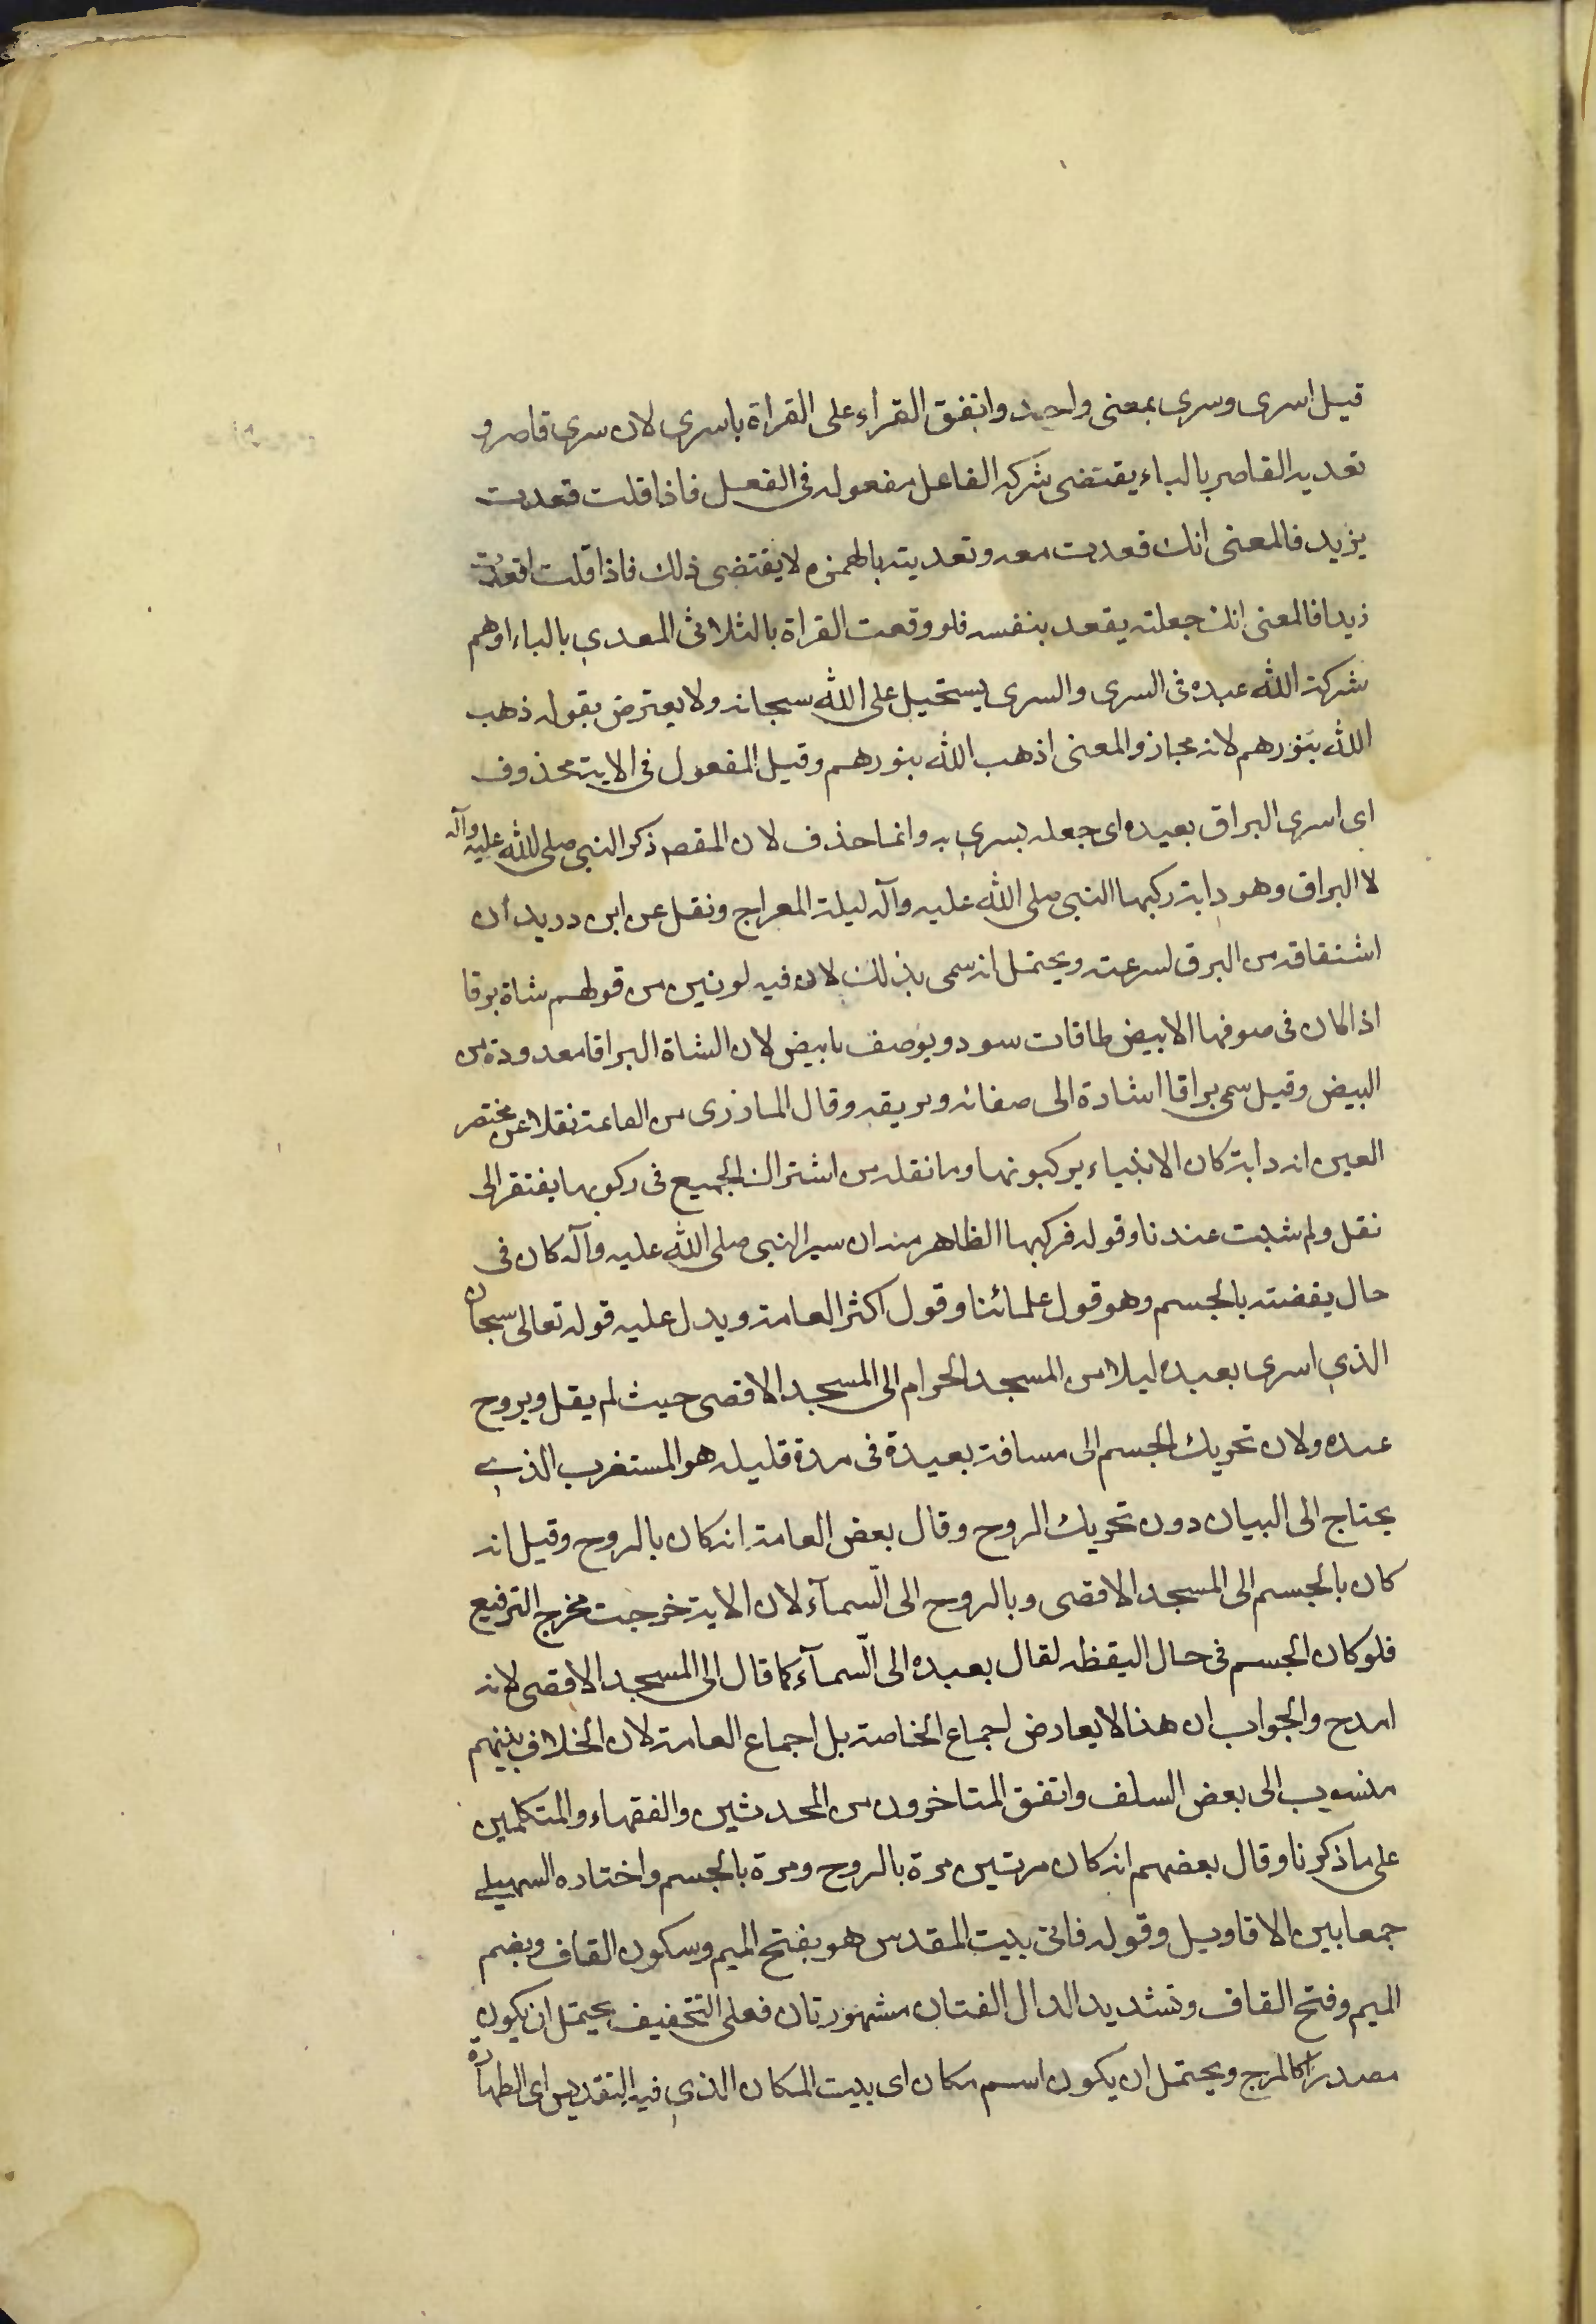 قيل اسرى وسرى بمعنى واحد واتفق القراء على القراة باسرى لان سرى قاصر و
تعديه القاصر بالباء يقتضى شركه الفاعل مفعوله فى الفعل فاذا قلت قعدت
بزيد فالمعنى انك قعدت معه وتعديته بالهمزه لا يقتضى ذلك فاذا قلت اقعدت
زيدا فالمعنى انك جعلته يقعد بنفسه فلو وقعت القراة بالثلاثى المعدي بالباء اوهم
شركة الله عبده فى السرى والسرى يستحيل على الله سبحانه ولا يعترض بقوله ذهب
الله بنورهم لانه مجاز والمعنى اذهب الله بنورهم وقيل المفعول فى الاية محذوف
اى اسرى البراق بعبده اى جعله يسري به وانما حذف لان المقصم ذكر النبى صلى الله عليه وآله
لا البراق وهو دابة ركبها النبى صلى الله عليه وآله ليلة المعراج ونقل عن ابن دريد أن
اشتقاقه من البرق لسرعته ويحتمل انه سمى بذلك لان فيه لونين من قولهم شاة برقا
اذا كان فى صوفها الابيض طاقات سود ويوصف بابيض لان الشاة البراقا معدودة من
البيض وقيل سمى براقا اشارة الى صفائه وبريقه وقال المازرى من العامة نقلا عن مختصر
العين انه دابة كان الانبياء يركبونها وما نقله من اشتراك الجميع فى ركوبها يفتقر الى
نقل ولم يثبت عندنا وقوله فركبها الظاهر منه ان سير النبى صلى الله عليه وآله كان فى
حال يقضته بالجسم وهو قول علمائنا وقول اكثر العامة ويدل عليه قوله تعالى سبحان
الذي اسرى بعبده ليلا من المسجد الحرام الى المسجد الاقصى حيث لم يقل وبروح
عبده ولان تحريك الجسم الى مسافة بعيدة فى مدة قليله هو المستغرب الذي
يحتاج الى البيان دون تحريك الروح وقال بعض العامة انه كان بالروح وقيل انه
كان بالجسم الى المسجد الاقصى وبالروح الى السمآء لان الاية خرجت مخرج الترفيع
فلو كان الجسم فى حال اليقظه لقال بعبده الى السمآء كما قال الى المسجد الاقصى لانه
امدح والجواب ان هذا لا يعارض اجماع الخاصة بل اجماع العامة لان الخلاف بينهم
منسوب الى بعض السلف واتفق المتاخرون من المحدثين والفقهاء والمتكلمين
على ما ذكرنا وقال بعضهم انه كان مرتين مرة بالروح ومرة بالجسم واختاره السهيلي
جمعا بين الاقاويل وقوله فاتى بيت المقدس هو بفتح الميم وسكون القاف وبضم
الميم وفتح القاف وتشديد الدال الغتان مشهورتان فعلى التخفيف يحتمل ان يكون
مصدرا كالمرجع ويحتمل ان يكون اسم مكان اى بيت المكان الذي فيه التقديس اى الطهارة